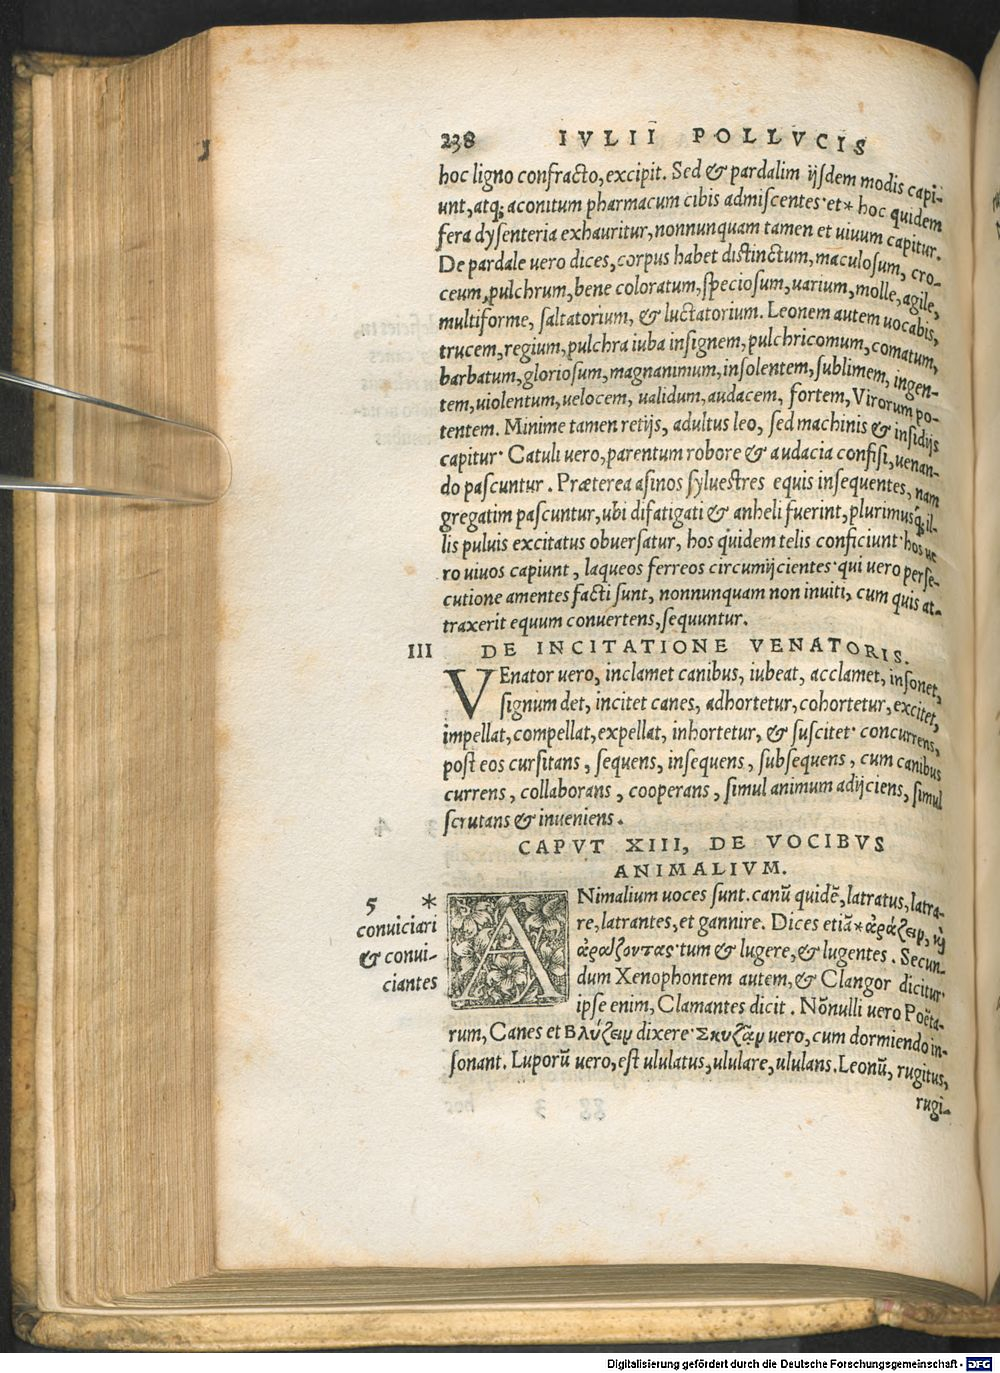 238 IVLII POLLVCIS
hoc ligno confracto, excipit. Sed & pardalim ijsdem modis capi-
unt, atq; aconitum pharmacum cibis admiscentes· et* hoc quidem
fera dysenteria exhauritur, nonnunquam tamen et uiuum capitur.
De pardale uero dices, corpus habet distinctum, maculosum, cro-
ceum, pulchrum, bene coloratum, speciosum, uarium, molle, agile,
multiforme, saltatorium, & luctatorium. Leonem autem uocabis,
trucem, regium, pulchra iuba insignem, pulchricomum, comatum,
barbatum, gloriosum, magnanimum, insolentem, sublimem, ingen-
tem, uiolentum, uelocem, ualidum, audacem, fortem, Virorum po-
tentem. Minime tamen retijs, adultus leo, sed machinis & insidijs
capitur· Catuli uero, parentum robore & audacia confisi, uenan-
do pascuntur. Præterea asinos syluestres equis insequentes, nam
gregatim pascuntur, ubi difatigati & anheli fuerint, plurimusq́; il-
lis puluis excitatus obuersatur, hos quidem telis conficiunt· hos ue
ro uiuos capiunt, laqueos ferreos circumijcientes· qui uero perse-
cutione amentes facti sunt, nonnunquam non inuiti, cum quis at-
traxerit equum conuertens, sequuntur.
III DE INCITATIONE VENATORIS.
VEnator uero, inclamet canibus, iubeat, acclamet, insonet,
signum det, incitet canes, adhortetur, cohortetur, excitet,
impellat, compellat, expellat, inhortetur, & suscitet· concurrens,
post eos cursitans, sequens, insequens, subsequens, cum canibus
currens, collaborans, cooperans, simul animum adijciens, simul
scrutans & inueniens.
CAPVT XIII, DE VOCIBVS
ANIMALIVM.
5 *
conuiciari
& conui-
ciantes
ANimalium uoces sunt. canũ quidẽ, latratus, latra-
re, latrantes, et gannire. Dices etiã * ἀράζειν, ϗ̀
ἀράζοντας· tum & lugere, & lugentes. Secun-
dum Xenophontem autem, & Clangor dicitur·
ipse enim, Clamantes dicit. Nõnulli uero Poëta-
rum, Canes et Βλύζειν dixere· Σκυζᾶν uero, cum dormiendo in-
sonant. Luporũ uero, est ululatus, ululare, ululans. Leonũ, rugitus,
rugi-
Digitalisierung gefördert durch die Deutsche Forschungsgemeinschaft - DFG